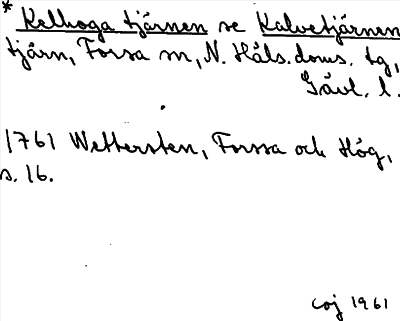 * Kelhoga tjärnen se Kalvetjärnen
tjärn, Forsa sn, N. Häls. doms. tg,
Gävl. l.
1761 Wettersten, Forssa och Hög,
s. 16.
coj 1961